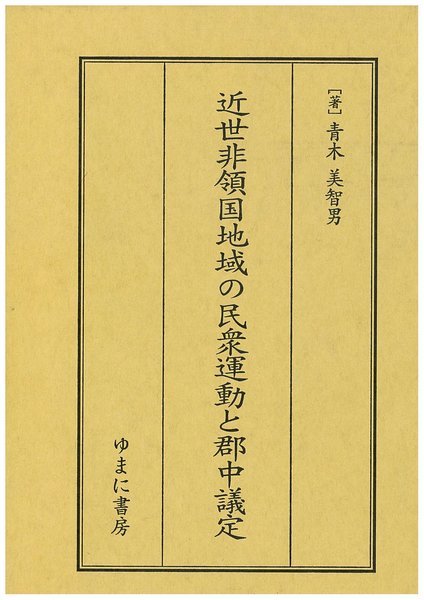 [著]青木 美智男
近世非領国地域の民衆運動と郡中議定
ゆまに書房